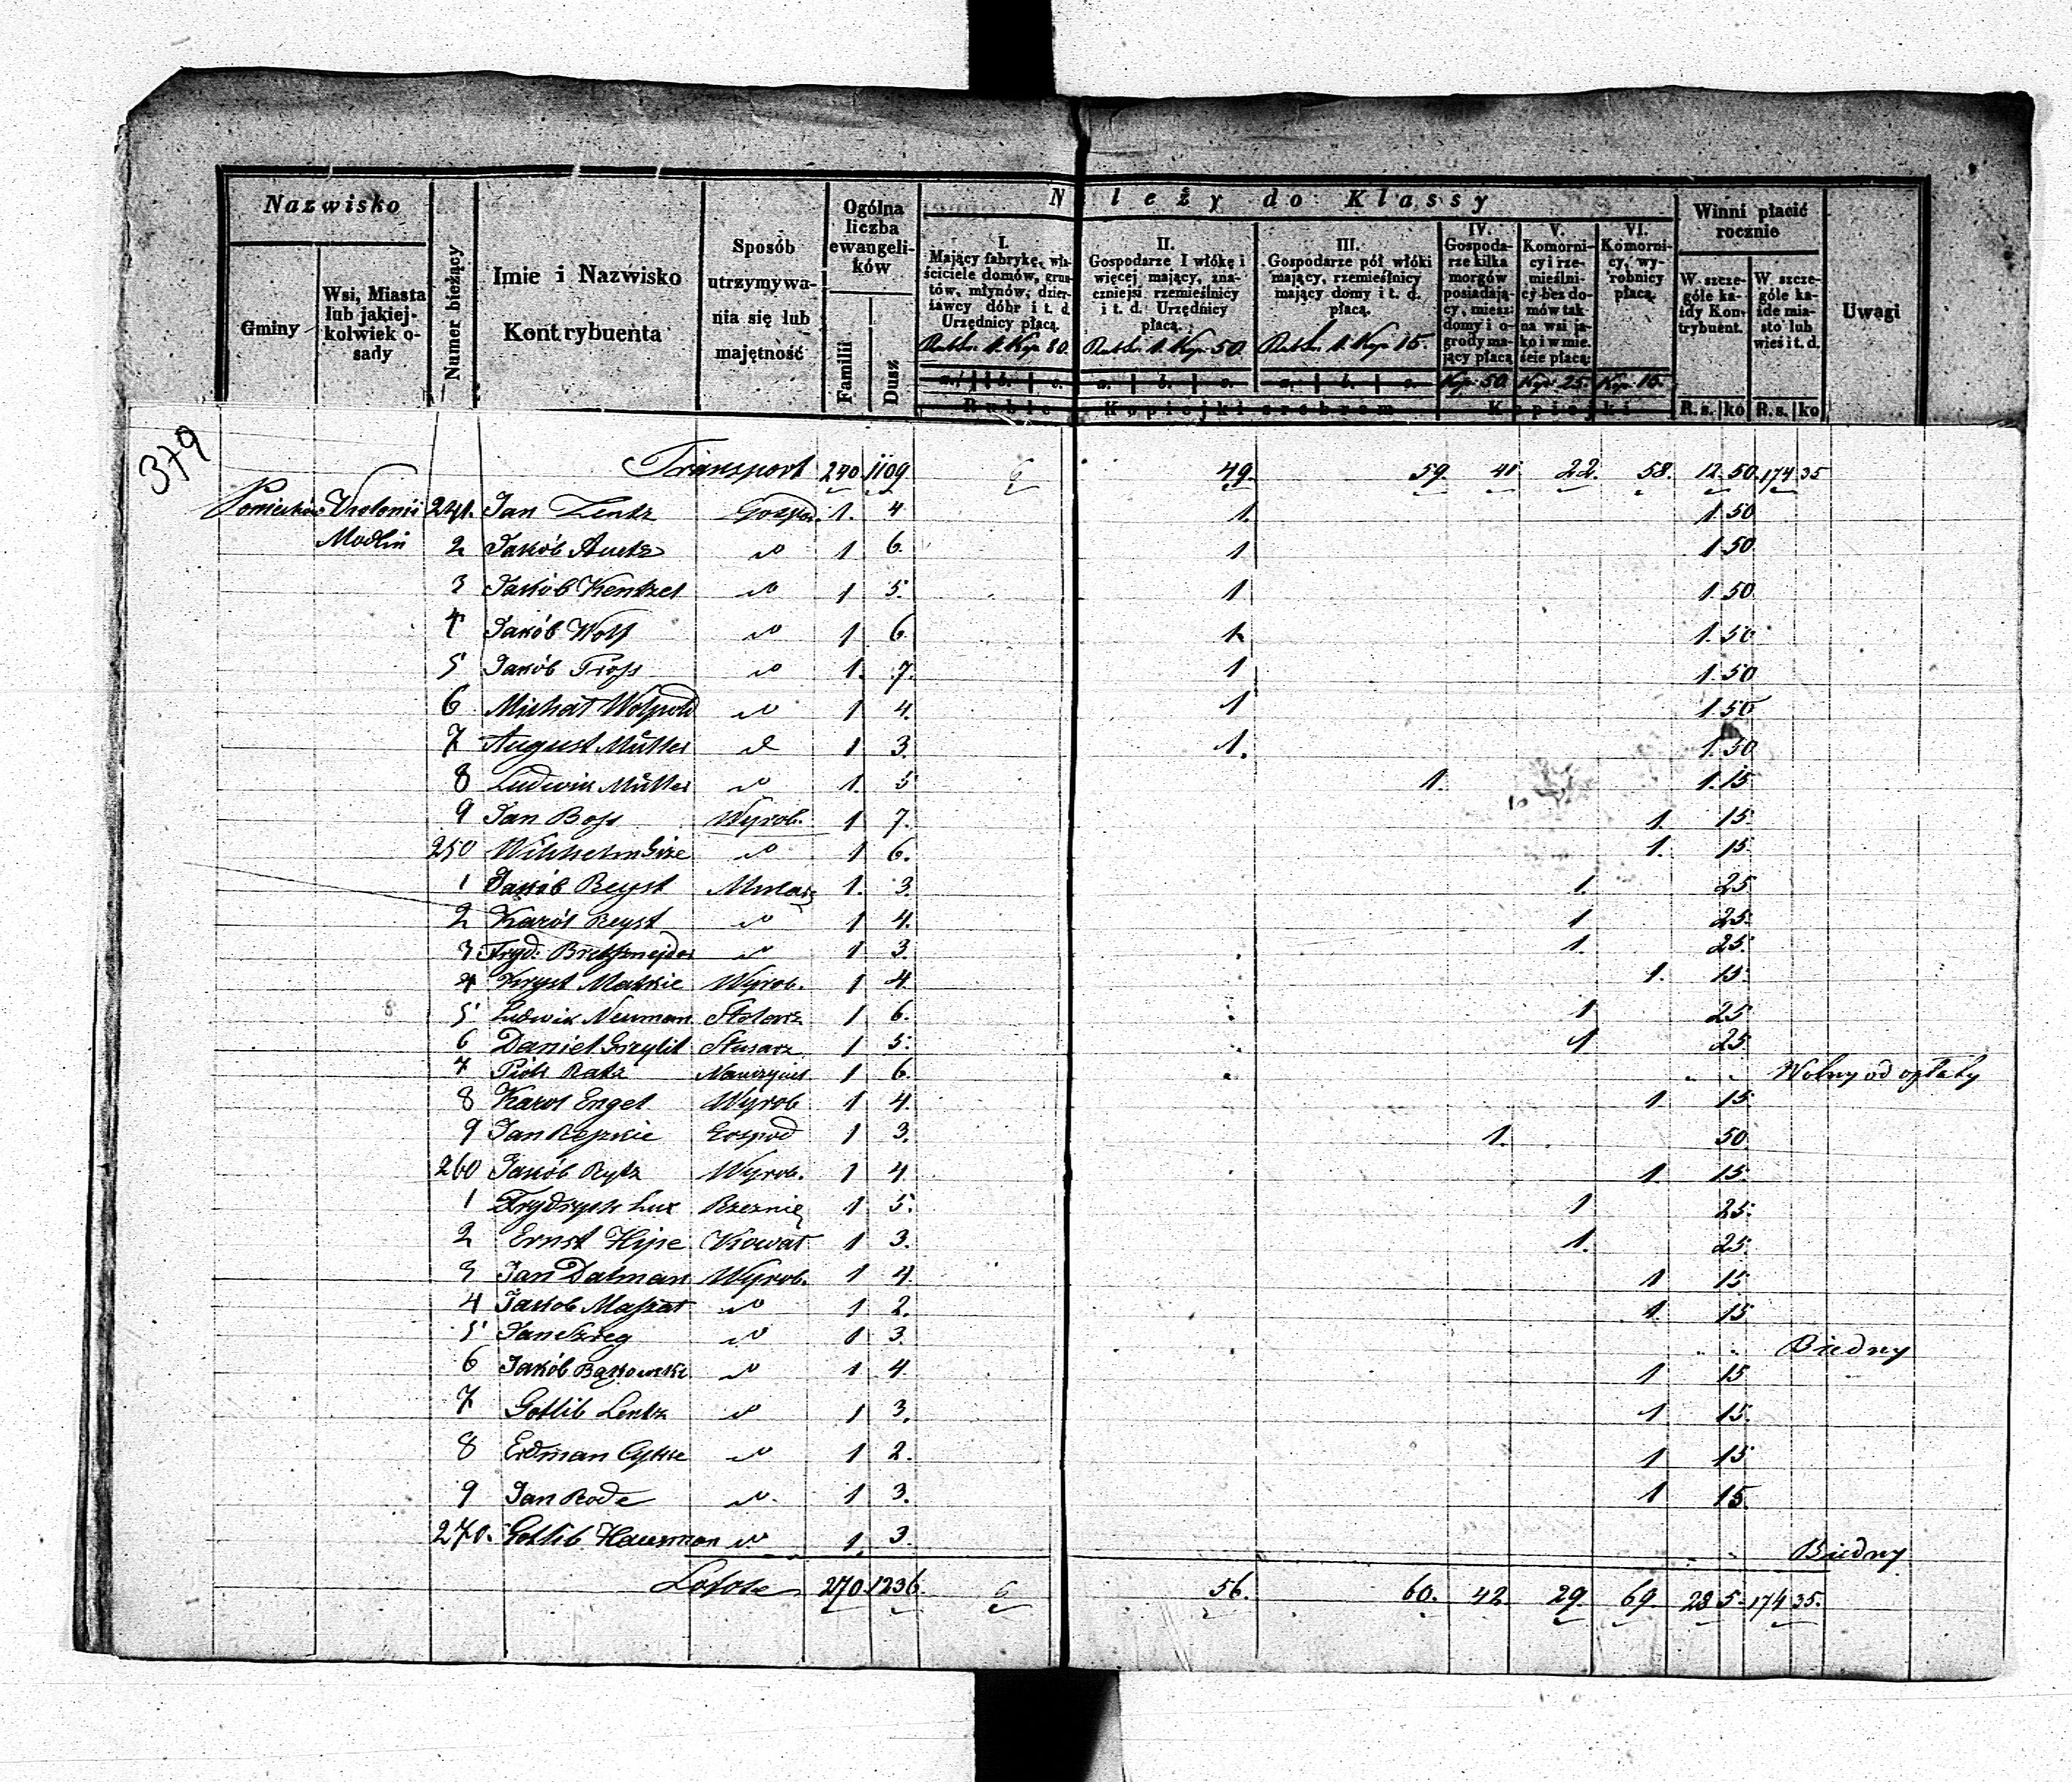 379
Nazwisko
Gminy
Wsi, Miasta lub jakiejkolwiek osady
Numer bieżący
Imie i Nazwisko Kontrybuenta
Sposób utrzymywania się lub majętność
Ogólna liczba ewangelików
Familii
Dusz
Należy do Klassy
I. Mający fabrykę, właściciele domów, gruntów, młynów, dzierżawcy dóbr i t. d. Urzędnicy płacą. Rubli 1. Kop 80.
II. Gospodarze 1 włókę i więcej mający, znaczniejsi rzemieślnicy i t. d. Urzędnicy płacą. Rubli. 1. Kop. 50.
III. Gospodarze pół włóki mający, rzemieślnicy mający domy i t. d. płacą. Rubli. 1. Kop 15.
IV. Gospodarze kilka morgów posiadający, mieszdomy i ogrody mający płacą Kop. 50.
V. Komornicy i rzemieślnicy bez domów tak na wsi jako i w mieście płacą: Kop: 25.
VI. Komornicy, wyrobnicy płacą. Kop. 15.
a. b. c. a. b. c. a. b. c.
Ruble Kopiejki srebrem Kopiejki
Winni płacić rocznie
W szczególe każdy Kontrybuent.
W szczególe każde miasto lub wieś i t. d.
R. s. ko R. s. ko
Uwagi
Transport 240. 1109 6 49. 59. 41 22. 58. 12. 50. 174 35
Kolonii 241. Jan Lentz Gospod. 1. 4 1. 1 50
Modlin 2 Jakób 1 6. 1 1 50
3 Jakób Kentzel 1 5. 1 1. 50.
4 Jakób Wolf 1 6 1 1. 50
5 Jakób 1. 7. 1 1. 50
6 Michał 1 4. 1 1 50
7 August Müller 1 3. 1. 1. 50
8 Ludwik Müller 1. 5 1. 1. 15
9 Jan Boss Wyrob. 1 7. 1. 15.
250 Wilhelm 1 6. 1. 15
1 Jakób Beyst Mularz 1. 3. 1. 25
2 Karól Beyst 1 4. 1 25.
3 Fryd: 1 3. 1. 25.
4 Kryst Matkie Wyrob. 1 4. 1. 15.
5 Ludwik Neuman Stolarz 1 6. 1 25
6 Daniel Ślusarz 1 5. 1 25
7 Piotr Ratz 1 6. Wolny od opłaty
8 Karol Engel Wyrob 1 4. 1 15
9 Jan Gospod 1 3. 1. 50
260 Jakób Rytz Wyrob. 1 4 1 15.
1 Frydrych Lux 1 5. 1 25.
2 Ernst Kowal 1 3. 1. 25.
3 Jan Dalman Wyrob. 1 4. 1 15
4 Jakob 1 2. 1. 15
5 Jan 1 3. Biedny
6 Jakób Bąkowski 1 4. 1 15
7 Gotlib Lentz 1 3. 1 15.
8 Erdman 1 2. 1 15
9 Jan Rode 1 3. 1 15.
270. Gotlib Hausman 1. 3. Biedny
270. 1236. 6 56. 60. 42 29. 69. 28 5. 174 35.